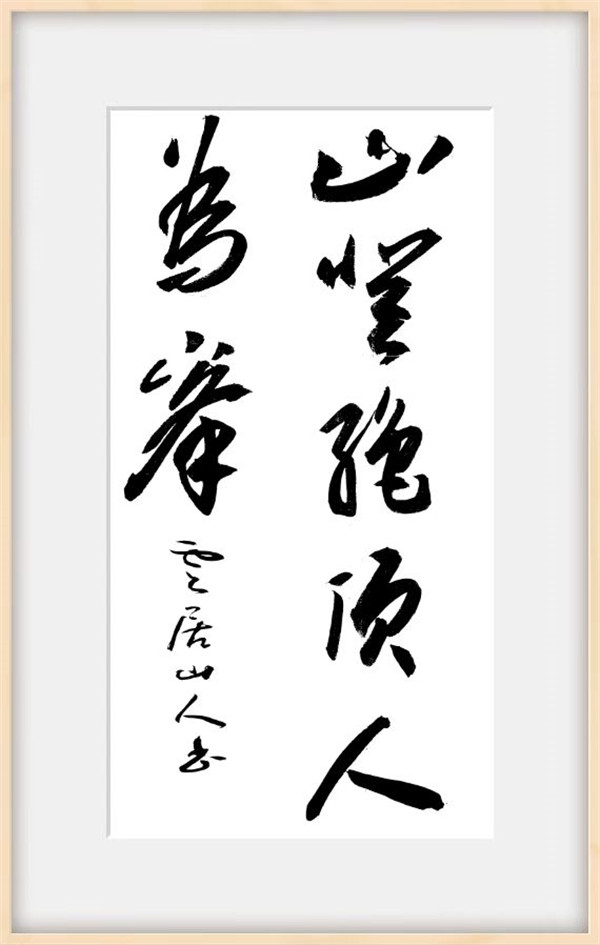 山登绝顶人
为峯
云居山人书